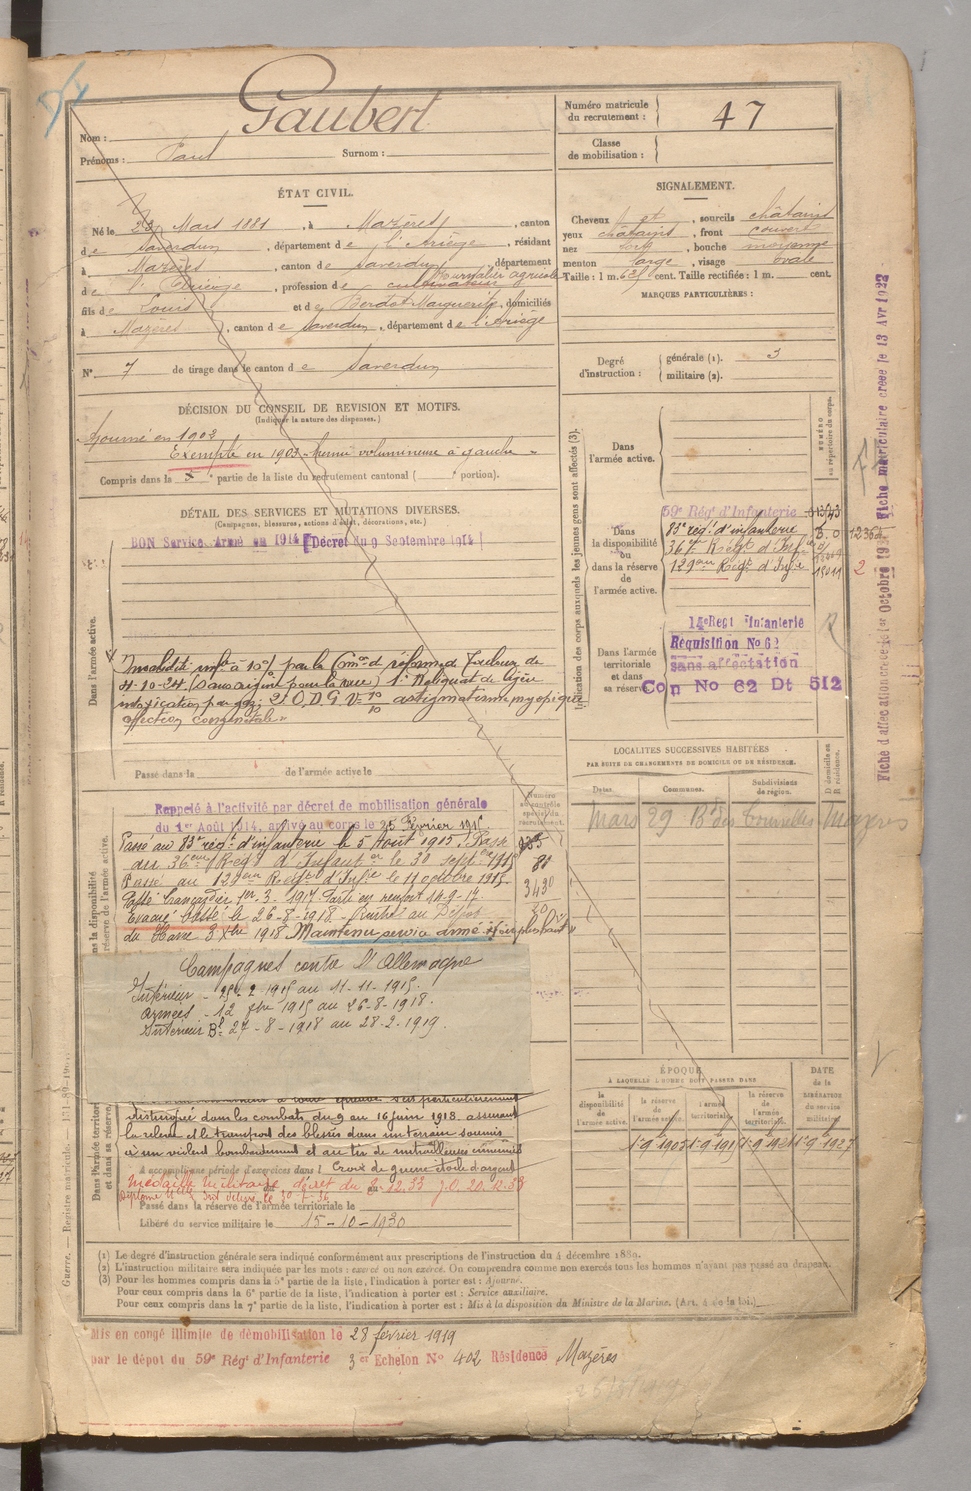 Gaubert
Nom :
Prénoms : Paul Surnom :
Numéro matricule
du recrutement : 47
Classe
de mobilisation :
ÉTAT CIVIL.
Né le 23 Mars 1881, à Mazères, canton
de Saverdun, département de l'Ariège, résidant
à Mazères, canton de Saverdun, département
de l'Ariège, profession de cultivateur journalier agricole
fils de Louis et de Berdot Marguerite, domiciliés
à Mazères, canton de Saverdun, département de l'Ariège
N° 7 de tirage dans le canton de Saverdun
SIGNALEMENT.
Cheveux et, sourcils châtains
yeux châtains, front couvert
nez fort, bouche moyenne
menton large, visage ovale
Taille : 1 m. 63 cent. Taille rectifiée : 1 m. cent.
MARQUES PARTICULIÈRES :
Degré
d'instruction :
générale (1). 3
militaire (2).
DÉCISION DU CONSEIL DE REVISION ET MOTIFS.
(Indiquer la nature des dispenses.)
Ajourné en 1902
Exempté en 1903 hernie volumineuse à gauche
Compris dans la partie de la liste du recrutement cantonal ( portion).
DÉTAIL DES SERVICES ET MUTATIONS DIVERSES.
(Campagnes, blessures, actions d'éclat, décorations, etc.)
BON Service Armé en 1914 [Décret du 9 Septembre 1914]
Dans l'armée active.
Invalidité inf^re à 10% par la Com^on de réforme de Toulouse du
4-10-24 (sans origine pour la vue) 1° Reliquat de légère
intoxication par gaz; 2° O.D.G. V= 10/10 astigmatisme myopique
affection congénitale"
Passé dans la de l'armée active le
Indication des corps auxquels les jeunes gens sont affectés (3).
NUMÉRO
au répertoire du corps.
Dans
l'armée active.
Dans
la disponibilité
ou
dans la réserve
de
l'armée active.
59e Régt d'Infanterie
83e régt d'infanterie
36e Régt d'Inf^ie
129eme Regt d'Inf^ie 15011
12364
2
Dans l'armée
territoriale
et dans
sa réserve
14e Regt Infanterie
Requisition No 62
sans affectation
Con No 62 Dt 512
LOCALITÉS SUCCESSIVES HABITÉES
PAR SUITE DE CHANGEMENTS DE DOMICILE OU DE RÉSIDENCE.
Dates. Communes. Subdivisions de région. D domicile ou R résidence.
Mars 29 Mazères
Numéro
au contrôle
spécial du
recrutement.
Rappelé à l'activité par décret de mobilisation générale
du 1er Août 1914, arrivé au corps le 25 Février 1915
Passé au 83e régt d'infanterie le 5 Août 1915. Passé
au 36eme Regt d'Infant^ie le 30 sept^bre 1915
Passé au 129eme Regt d'Inf^ie le 11 octobre 1915.
Passé brancardier 1er. 3. 1917. Parti en renfort 14.9.17.
Evacué blessé le 26-8-1918. Rentré au Dépôt
du Havre 3 Xbre 1918 Maintenu service armé
80
3430
Campagnes contre l'Allemagne
Intérieur - 25-2-1915 au 11-11-1915.
Armées - 12 9bre 1915 au 26-8-1918.
Intérieur Bé 27-8-1918 au 28.2.1919.
Dans l'armée territoriale et dans sa réserve.
s'est particulièrement
distingué dans les combats du 9 au 16 juin 1918. assurant
la relève et le transport des blessés dans un terrain soumis
à un violent bombardement et au tir de mitrailleuses ennemies
Croix de guerre étoile d'argent
A accompli une période d'exercices dans l
Médaille Militaire décret du 12.33 J.O. 20.12.33
Passé dans la réserve de l'armée territoriale le
Libéré du service militaire le 15-10-1930
ÉPOQUE
À LAQUELLE L'HOMME DOIT PASSER DANS
la disponibilité de l'armée active.
la réserve de l'armée active.
l'armée territoriale.
la réserve de l'armée territoriale.
DATE
de la
LIBÉRATION
du service
militaire.
(1) Le degré d'instruction générale sera indiqué conformément aux prescriptions de l'instruction du 4 décembre 1889.
(2) L'instruction militaire sera indiquée par les mots : exercé ou non exercé. On comprendra comme non exercés tous les hommes n'ayant pas passé au drapeau.
(3) Pour les hommes compris dans la 5e partie de la liste, l'indication à porter est : Ajourné.
Pour ceux compris dans la 6e partie de la liste, l'indication à porter est : Service auxiliaire.
Pour ceux compris dans la 7e partie de la liste, l'indication à porter est : Mis à la disposition du Ministre de la Marine. (Art. 4 de la loi.)
Mis en congé illimité de démobilisation le 28 février 1919
par le dépôt du 59e Régt d'Infanterie 3er Echelon No 402 Résidence Mazères
Guerre. — Registre matricule.
Fiche matriculaire créée le 13 Avr 1922
Fiche d'affectation créée le 1er Octobre